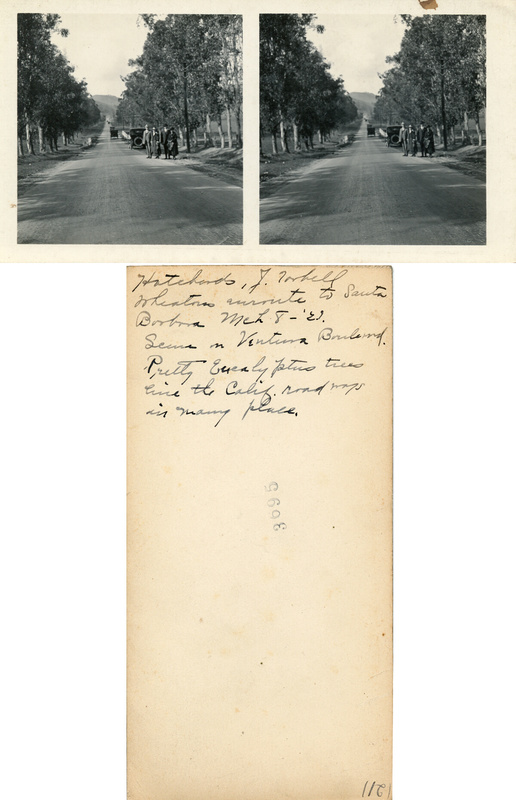 Hotchkids, J. Torkell
Wheatons enroute to Santa
Barbara Mch 8-'21.
Scene on Ventura Boulevard.
Pretty Eucalyptus trees
line the Calif. roadways
in many places.
3695